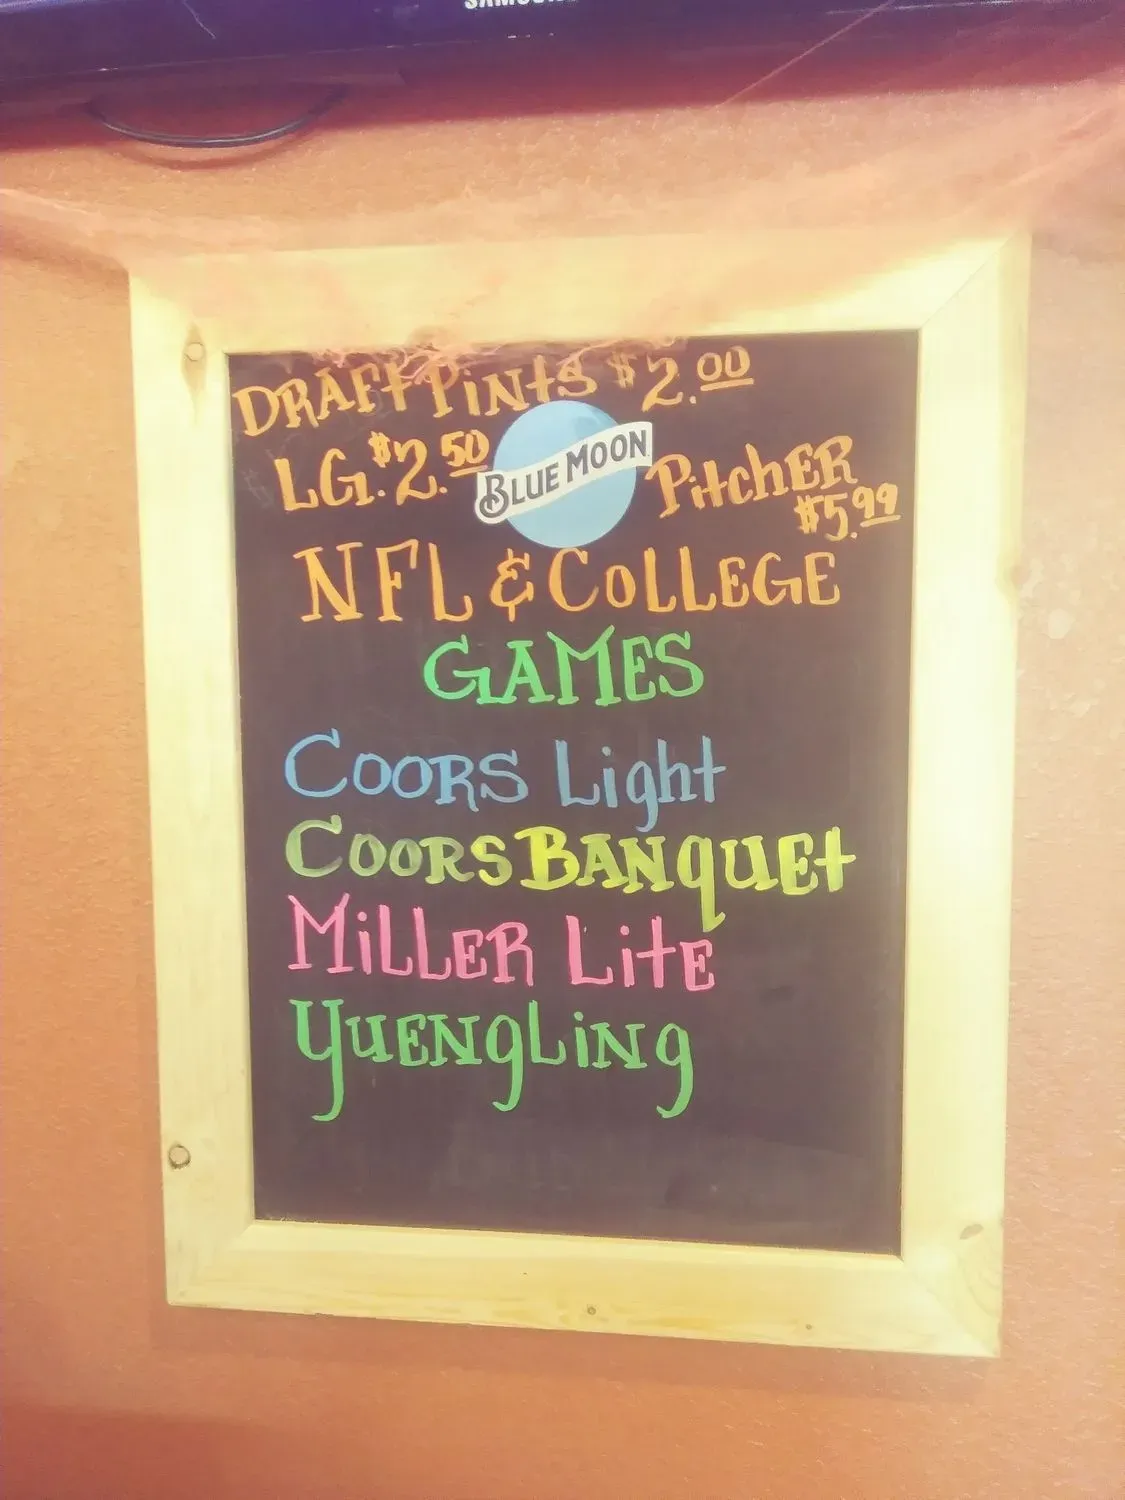 SAMSUNG
DRAFT PiNtS $2.00
LG. $2.50
BLUE MOON
PitchER
$5.99
NFL & COLLEGE
GAMES
COORS Light
COORS BANquEt
MiLLER LitE
YuENgLiNg